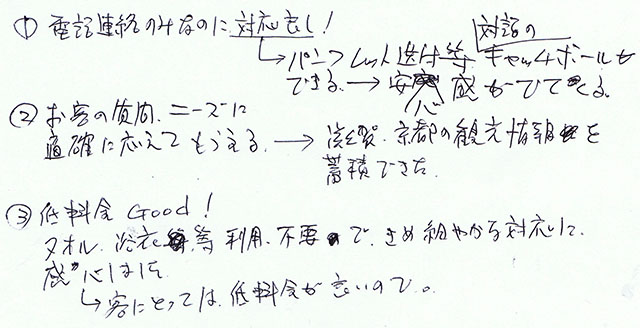 ① 電話連絡のみなのに対応良し!
対話の
↳パンフレット送付等 キャッチボールも
できる。→ 安心感がでてくる。
② お客の質問、ニーズに
適確に応えてもらえる。 → 滋賀、京都の観光情報を
蓄積できた。
③ 低料金 Good!
タオル、浴衣等利用、不要で、きめ細やかな対応に、
感心しました
↳ 客にとっては、低料金が良いので。